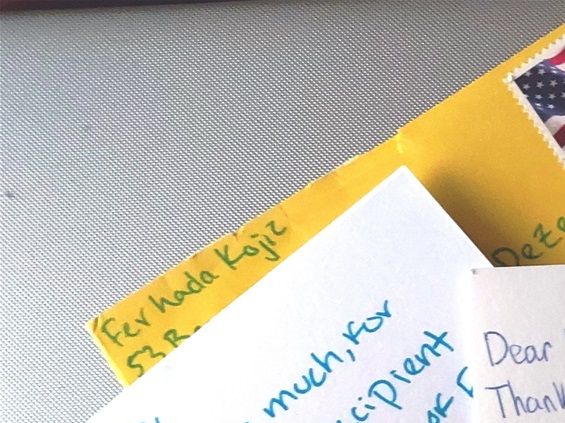 Ferhada Kojic
53
much, for
cipient
Dear
Thank